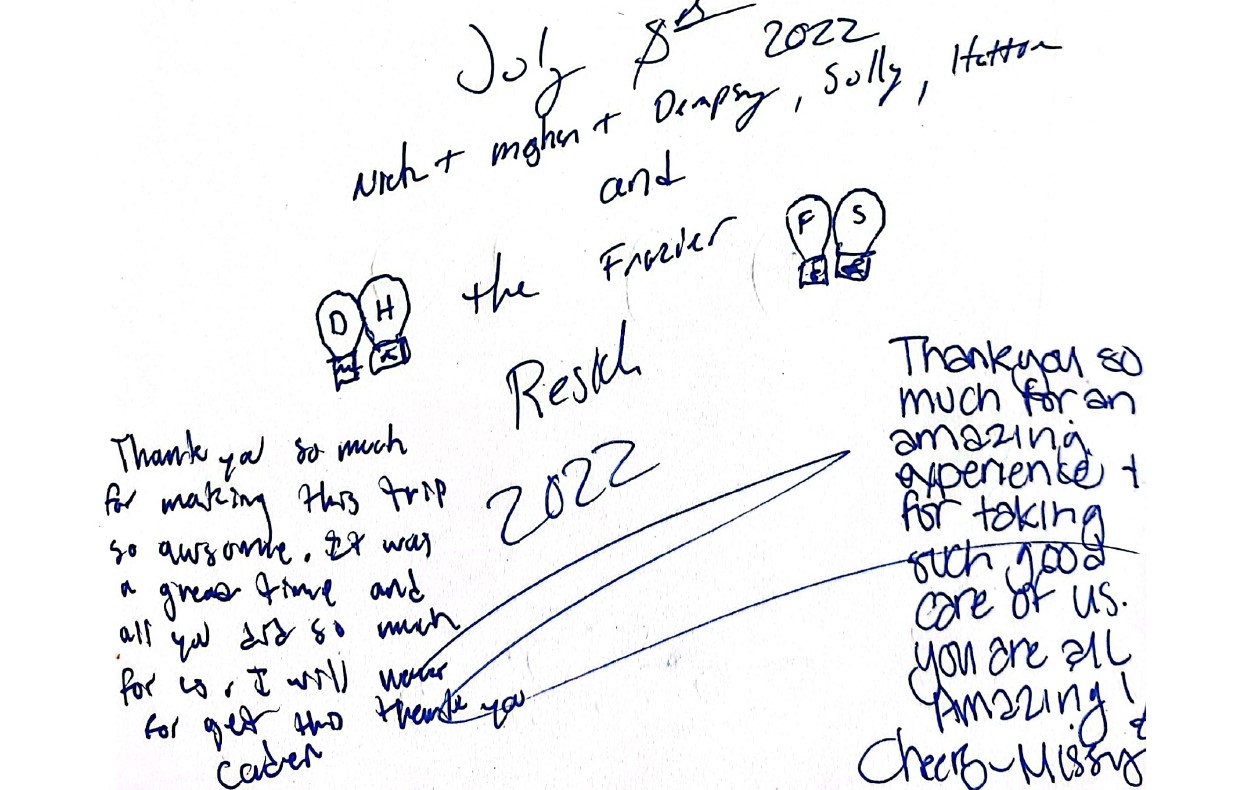 July 8th 2022
Nick + mghen + Dempsy, Sully, Hatton
and
F S
the Frazier
D H
2022
Thank you so much
for making this trip
so awsome. It was
a great time and
all you did so much
for us, I will never
for get this thank you
Caden
Thank you so
much for an
amazing
experience +
for taking
such good
care of us.
you are all
Amazing!
Cheers ~ Missy